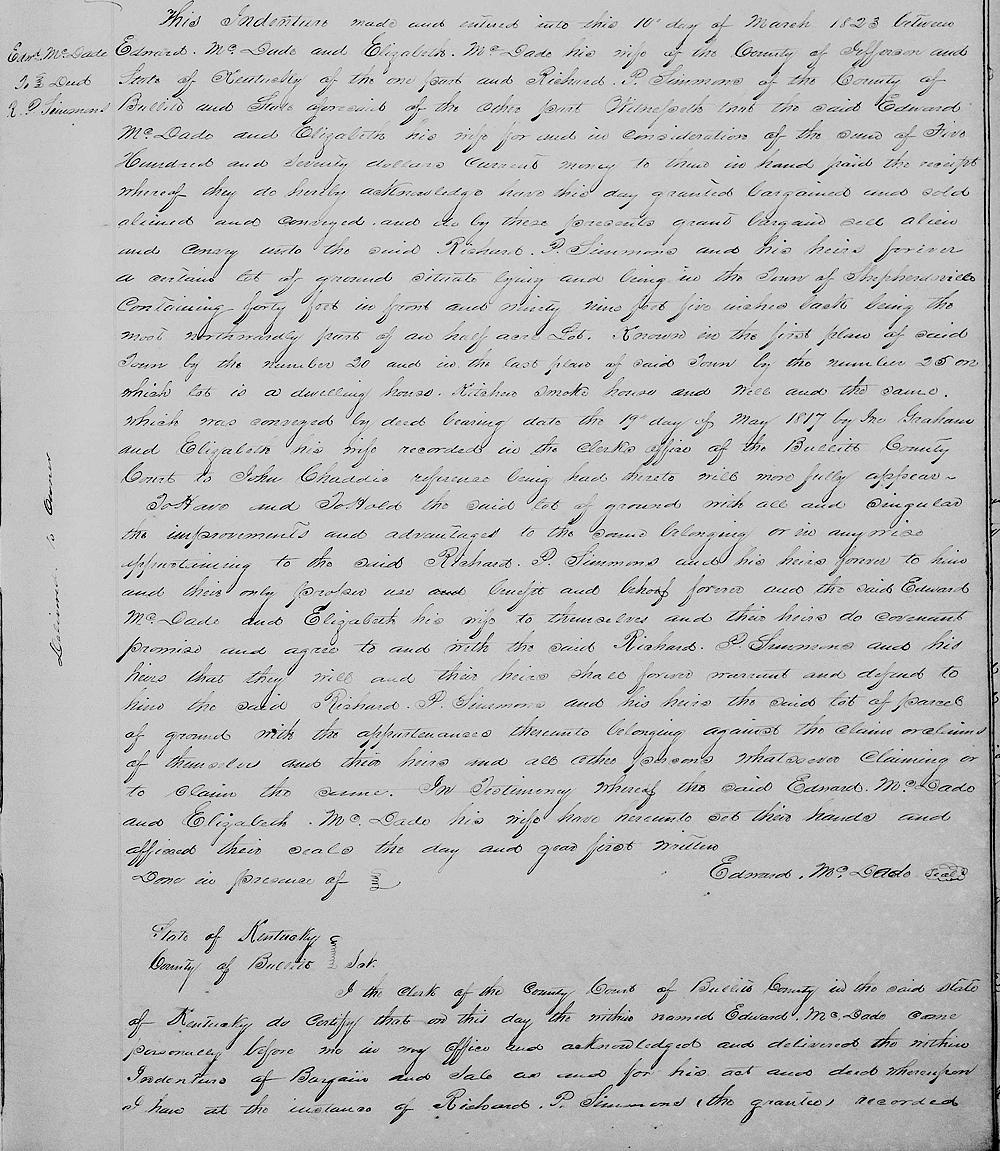 This Indenture made and entered into this 10th day of March 1823 between
Edwd. McDade
To } Deed
R. P. Simmons
Edward. Mc. Dade and Elizabeth. Mc.Dade his wife of the County of Jefferson and
State of Kentucky of the one part and Richard. P. Simmons of the County of
Bullitt and State aforesaid of the other part Witnesseth that the said Edward
Mc.Dade and Elizabeth his wife for and in consideration of the sum of Five
Hundred and Seventy dollars Current money to them in hand paid the receipt
whereof they do hereby acknowledge have this day granted bargained and sold
aliened and conveyed. and do by these presents grant bargain sell alien
and convey unto the said Richard. P. Simmons and his heirs forever
a certain lot of ground situate lying and being in the Town of Shepherdsville
Containing forty feet in front and ninty nine feet five inches back being the
most northwardly part of an half acre Lot. Known in the first plan of said
Town by the number 20 and in the last plan of said Town by the number 25 on
which lot is a dwelling house. Kitchen smoke house and Well and the same.
which was conveyed by deed bearing date the 19th day of May 1817 by Jno Graham
and Elizabeth his wife recorded in the clerks office of the Bullitt County
Court to John Chaddic reference being had thereto will more fully appear~
To Have and To Hold the said lot of ground with all and singular
the improvements and advantages to the same belonging or in anywise
appertaining to the said Richard. P. Simmons and his heirs forever to him
and their only proper use and benefit and behoof forever and the said Edward
Mc.Dade and Elizabeth his wife to themselves and their heirs do covenant
promise and agree to and with the said Richard. P. Simmons and his
heirs that they will and their heirs shall forever warrant and defend to
him the said Richard. P. Simmons and his heirs the said lot of parcel
of ground with the appurtenances thereunto belonging against the claim or claims
of themselves and their heirs and all other persons whatsoever Claiming or
to claim the same. In Testimony whereof the said Edward. Mc.Dade
and Elizabeth. Mc. Dade his wife have hereunto set their hands and
affixed their seals the day and year first written
Done in presence of }
Edward. Mc. Dade Seal
State of Kentucky }
County of Bullitt } Sct.
I the clerk of the County Court of Bullitt County in the said state
of Kentucky do Certify that on this day the within named Edward. Mc.Dade came
personally before me in my office and acknowledged and delivered the within
Indenture of Bargain and Sale as and for his act and deed whereupon
I have at the instance of Richard. P. Simmons (the grantee) recorded